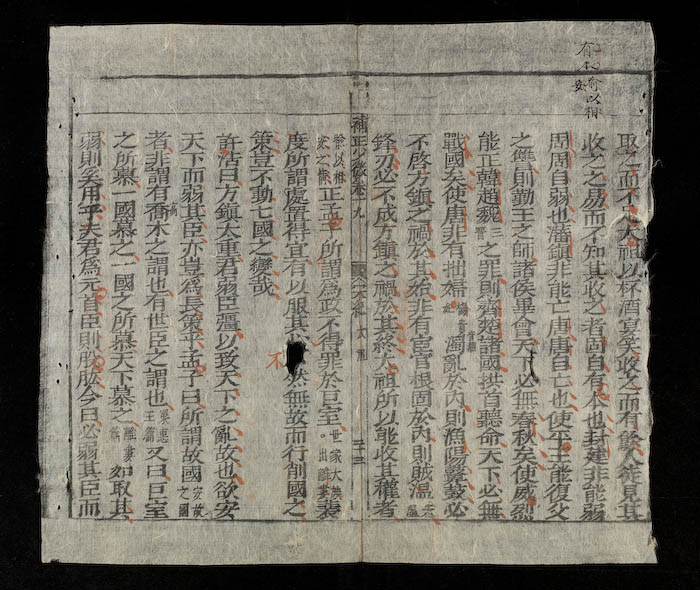 有 俞以相
安
取之而不足太祖以杯酒宴笑收之而有餘人徒見其
收之之易而不知其收之者固自有本也封建非能弱
周周自弱也藩鎮非能亡唐唐自亡也使平王能復父
之讐則勤王之師諸侯畢會天下必無春秋矣使威烈
能正韓趙魏三晉之罪則齊楚諸國拱首聽命天下必無
戰國矣使唐非有拙婦楊貴妃濁亂於內則漁陽鼙鼓必
不啓方鎮之禍於其始非有宦官根固於內則賊溫朱溫
鋒刃必不成方鎮之禍於其終太祖所以能收其權者
補正少微卷十九 太祖 三十三
徐以相安之術正孟子所謂爲政不得罪於巨室世家大族○出離婁裴
度所謂處置得宜有以服其心不然無故而行削國之
策豈不動七國之變哉
許浩曰方鎮太重君弱臣彊以致天下之亂故也欲安
天下而弱其臣亦豈爲長策乎孟子曰所謂故國
者非謂有喬木之謂也有世臣之謂也梁惠王篇又曰巨室
之所慕一國慕之一國之所慕天下慕之離婁篇如取其
弱則奚用乎夫君爲元首臣則股肱今曰必弱其臣而